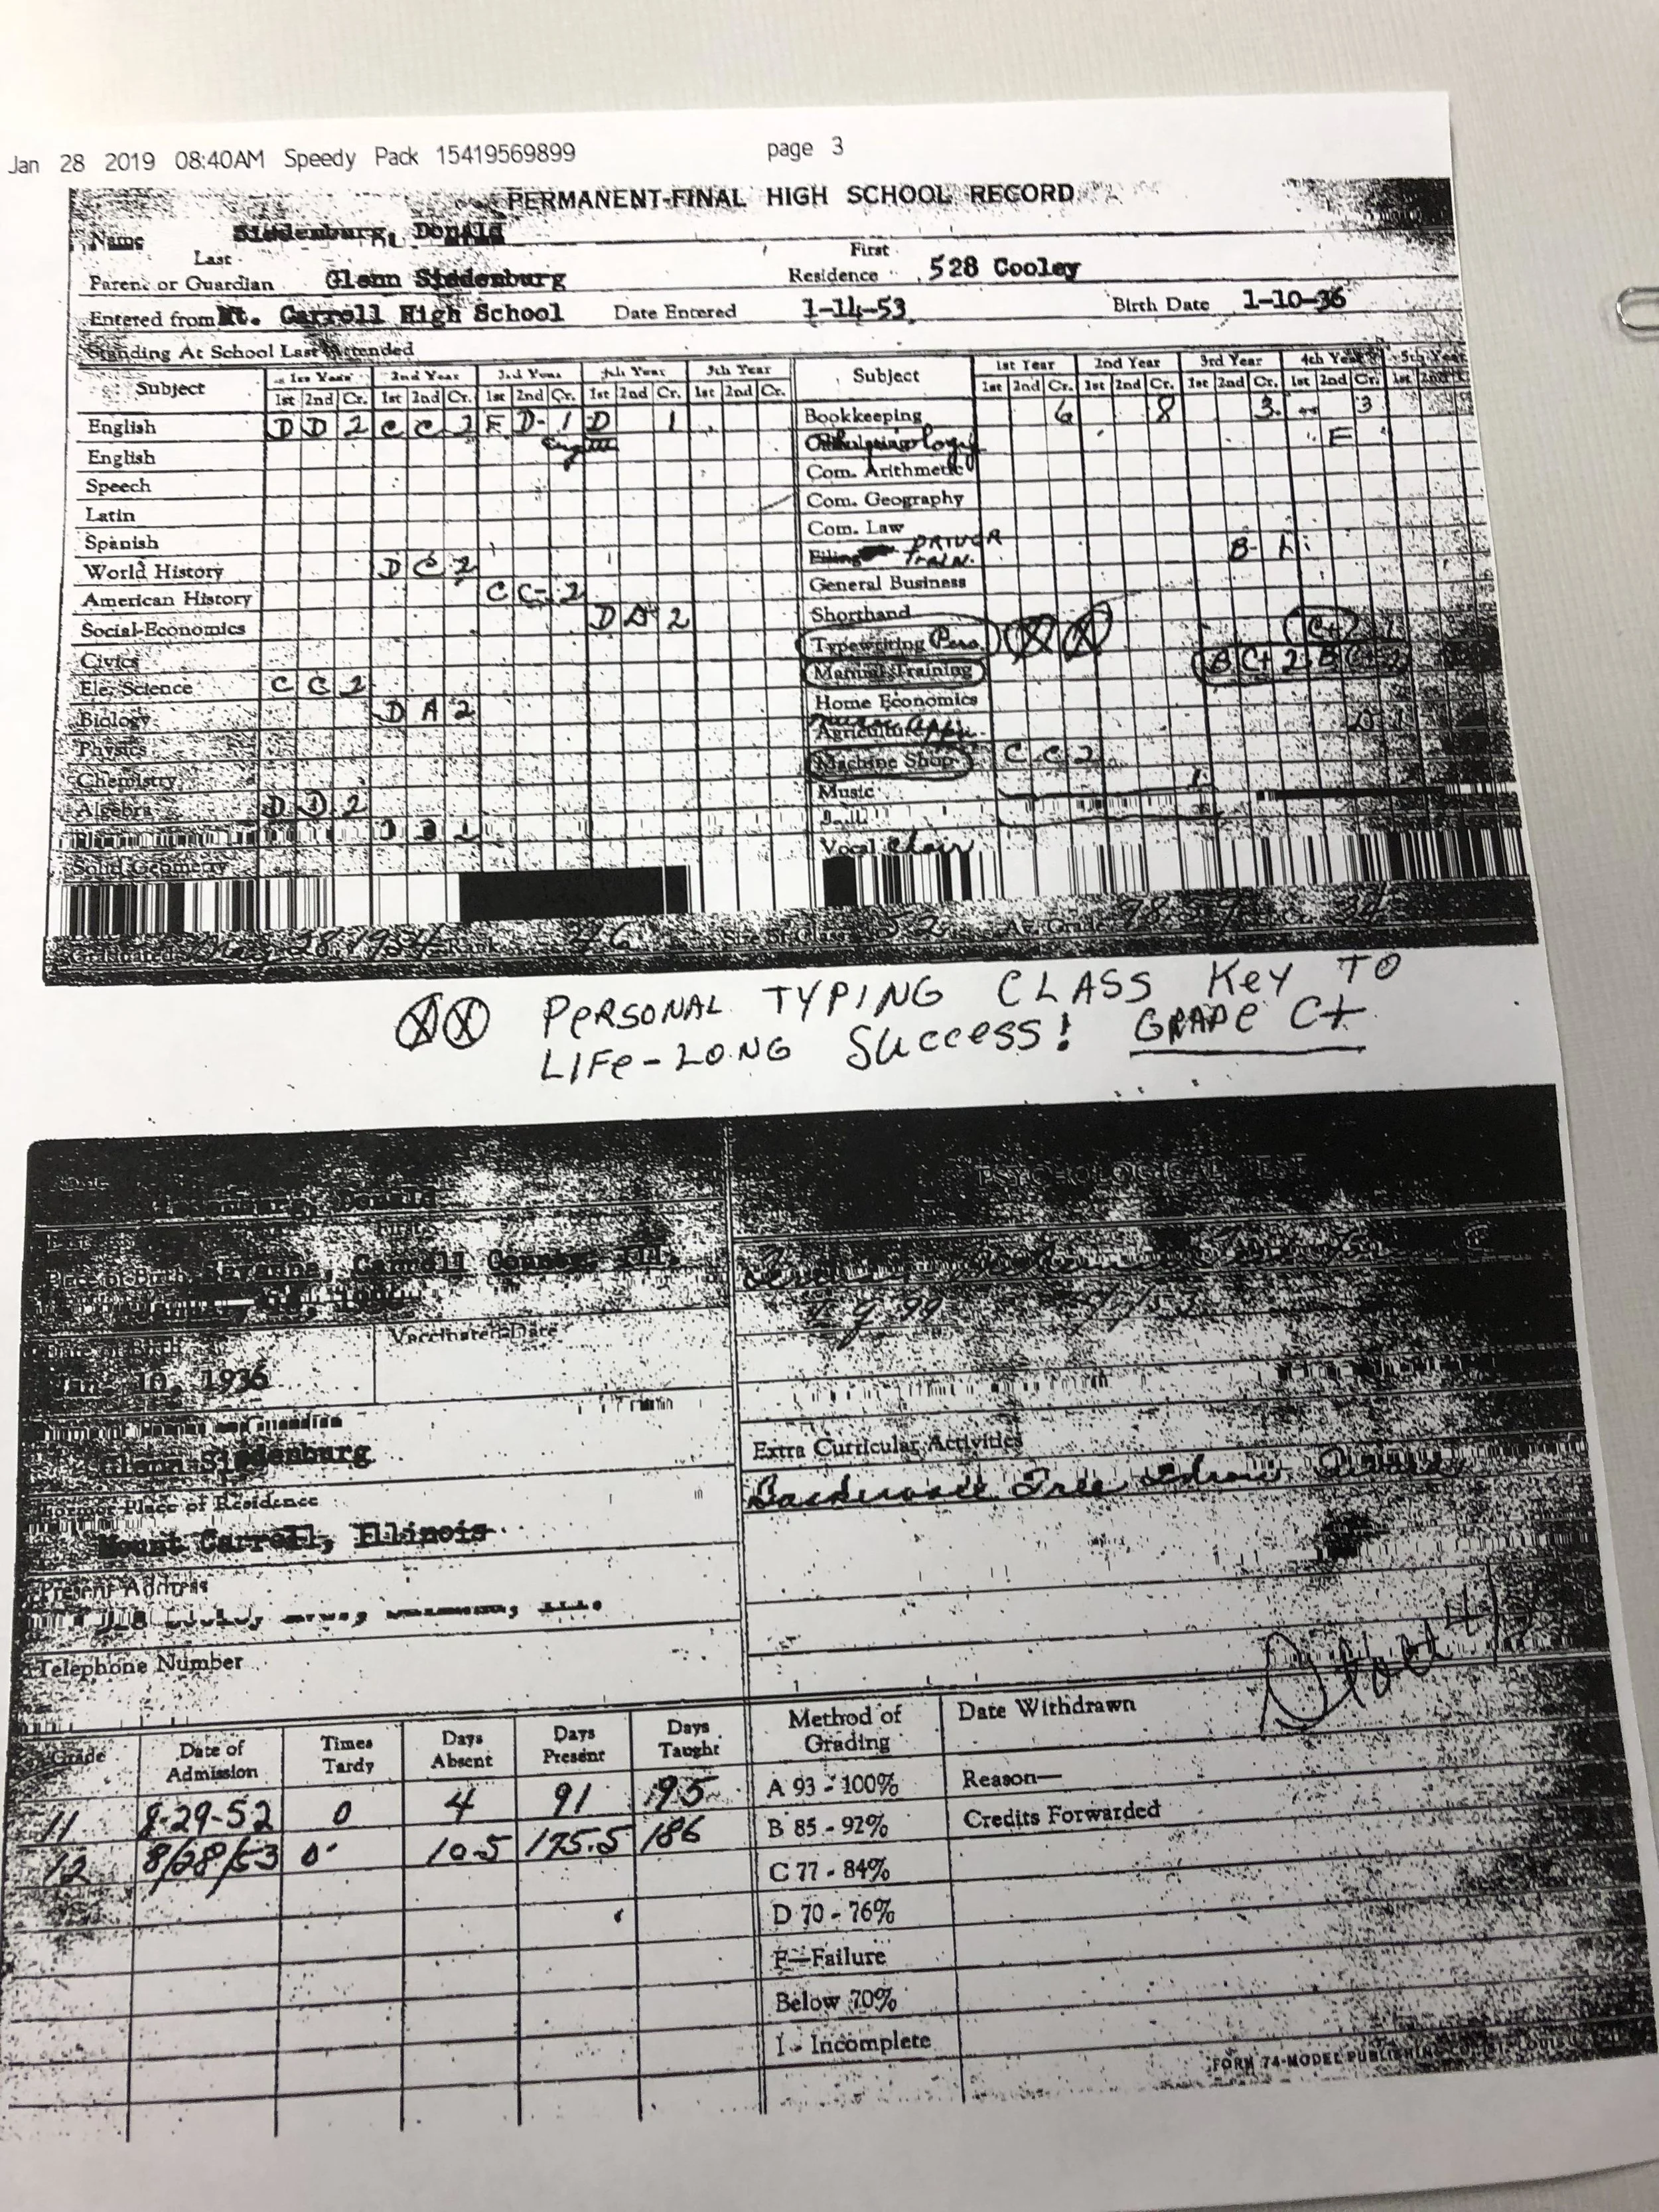 Jan 28 2019 08:40AM Speedy Pack 15419569899 page 3
PERMANENT-FINAL HIGH SCHOOL RECORD
Name Siedenburg, Donald
Last First
Parent or Guardian Glenn Siedenburg Residence 528 Cooley
Entered from Mt. Carroll High School Date Entered 1-14-53 Birth Date 1-10-36
Standing At School Last Attended
Subject 1st Year 2nd Year 3rd Year 4th Year 5th Year Subject 1st Year 2nd Year 3rd Year 4th Year 5th Year
1st 2nd Cr. 1st 2nd Cr. 1st 2nd Cr. 1st 2nd Cr. 1st 2nd Cr. 1st 2nd Cr. 1st 2nd Cr. 1st 2nd Cr. 1st 2nd Cr. 1st 2nd
English D D 2 C C 2 F D- 1 D 1 Bookkeeping 6 8 3 3
English F
Speech Com. Arithmetic
Latin Com. Geography
Spanish Com. Law
World History D C 2 Filing DRIVER TRAIN. B- 1
American History C C- 2 General Business
Social-Economics D D 2 Shorthand
Civics Typewriting Pers. C+ 1
Ele. Science C C 2 Manual Training B C+ 2 B C+ 2
Biology D A 2 Home Economics
Physics Agriculture
Chemistry Machine Shop C C 2
Algebra D D 2 Music
Solid Geometry Vocal
Graduated May 28, 1954 Rank 46 Size of Class 52 Av. Grade
PERSONAL TYPING CLASS KEY TO
LIFE-LONG SUCCESS! GRADE C+
PSYCHOLOGICAL TEST
Siedenburg, Donald
First
Place of Birth Savanna, Carroll County, Ill.
Date of Birth Vaccinated-Date
Jan. 10, 1936
Guardian
Glenn Siedenburg Extra Curricular Activities
Former Place of Residence
Mount Carroll, Illinois
Present Address
Telephone Number
Grade Date of Admission Times Tardy Days Absent Days Present Days Taught Method of Grading Date Withdrawn
11 8-29-52 0 4 91 195 A 93 - 100% Reason—
12 8/28/53 0 10.5 175.5 186 B 85 - 92% Credits Forwarded
C 77 - 84%
D 70 - 76%
F—Failure
Below 70%
I - Incomplete
FORM 74-MODEL PUBLISHING CO. ST. LOUIS